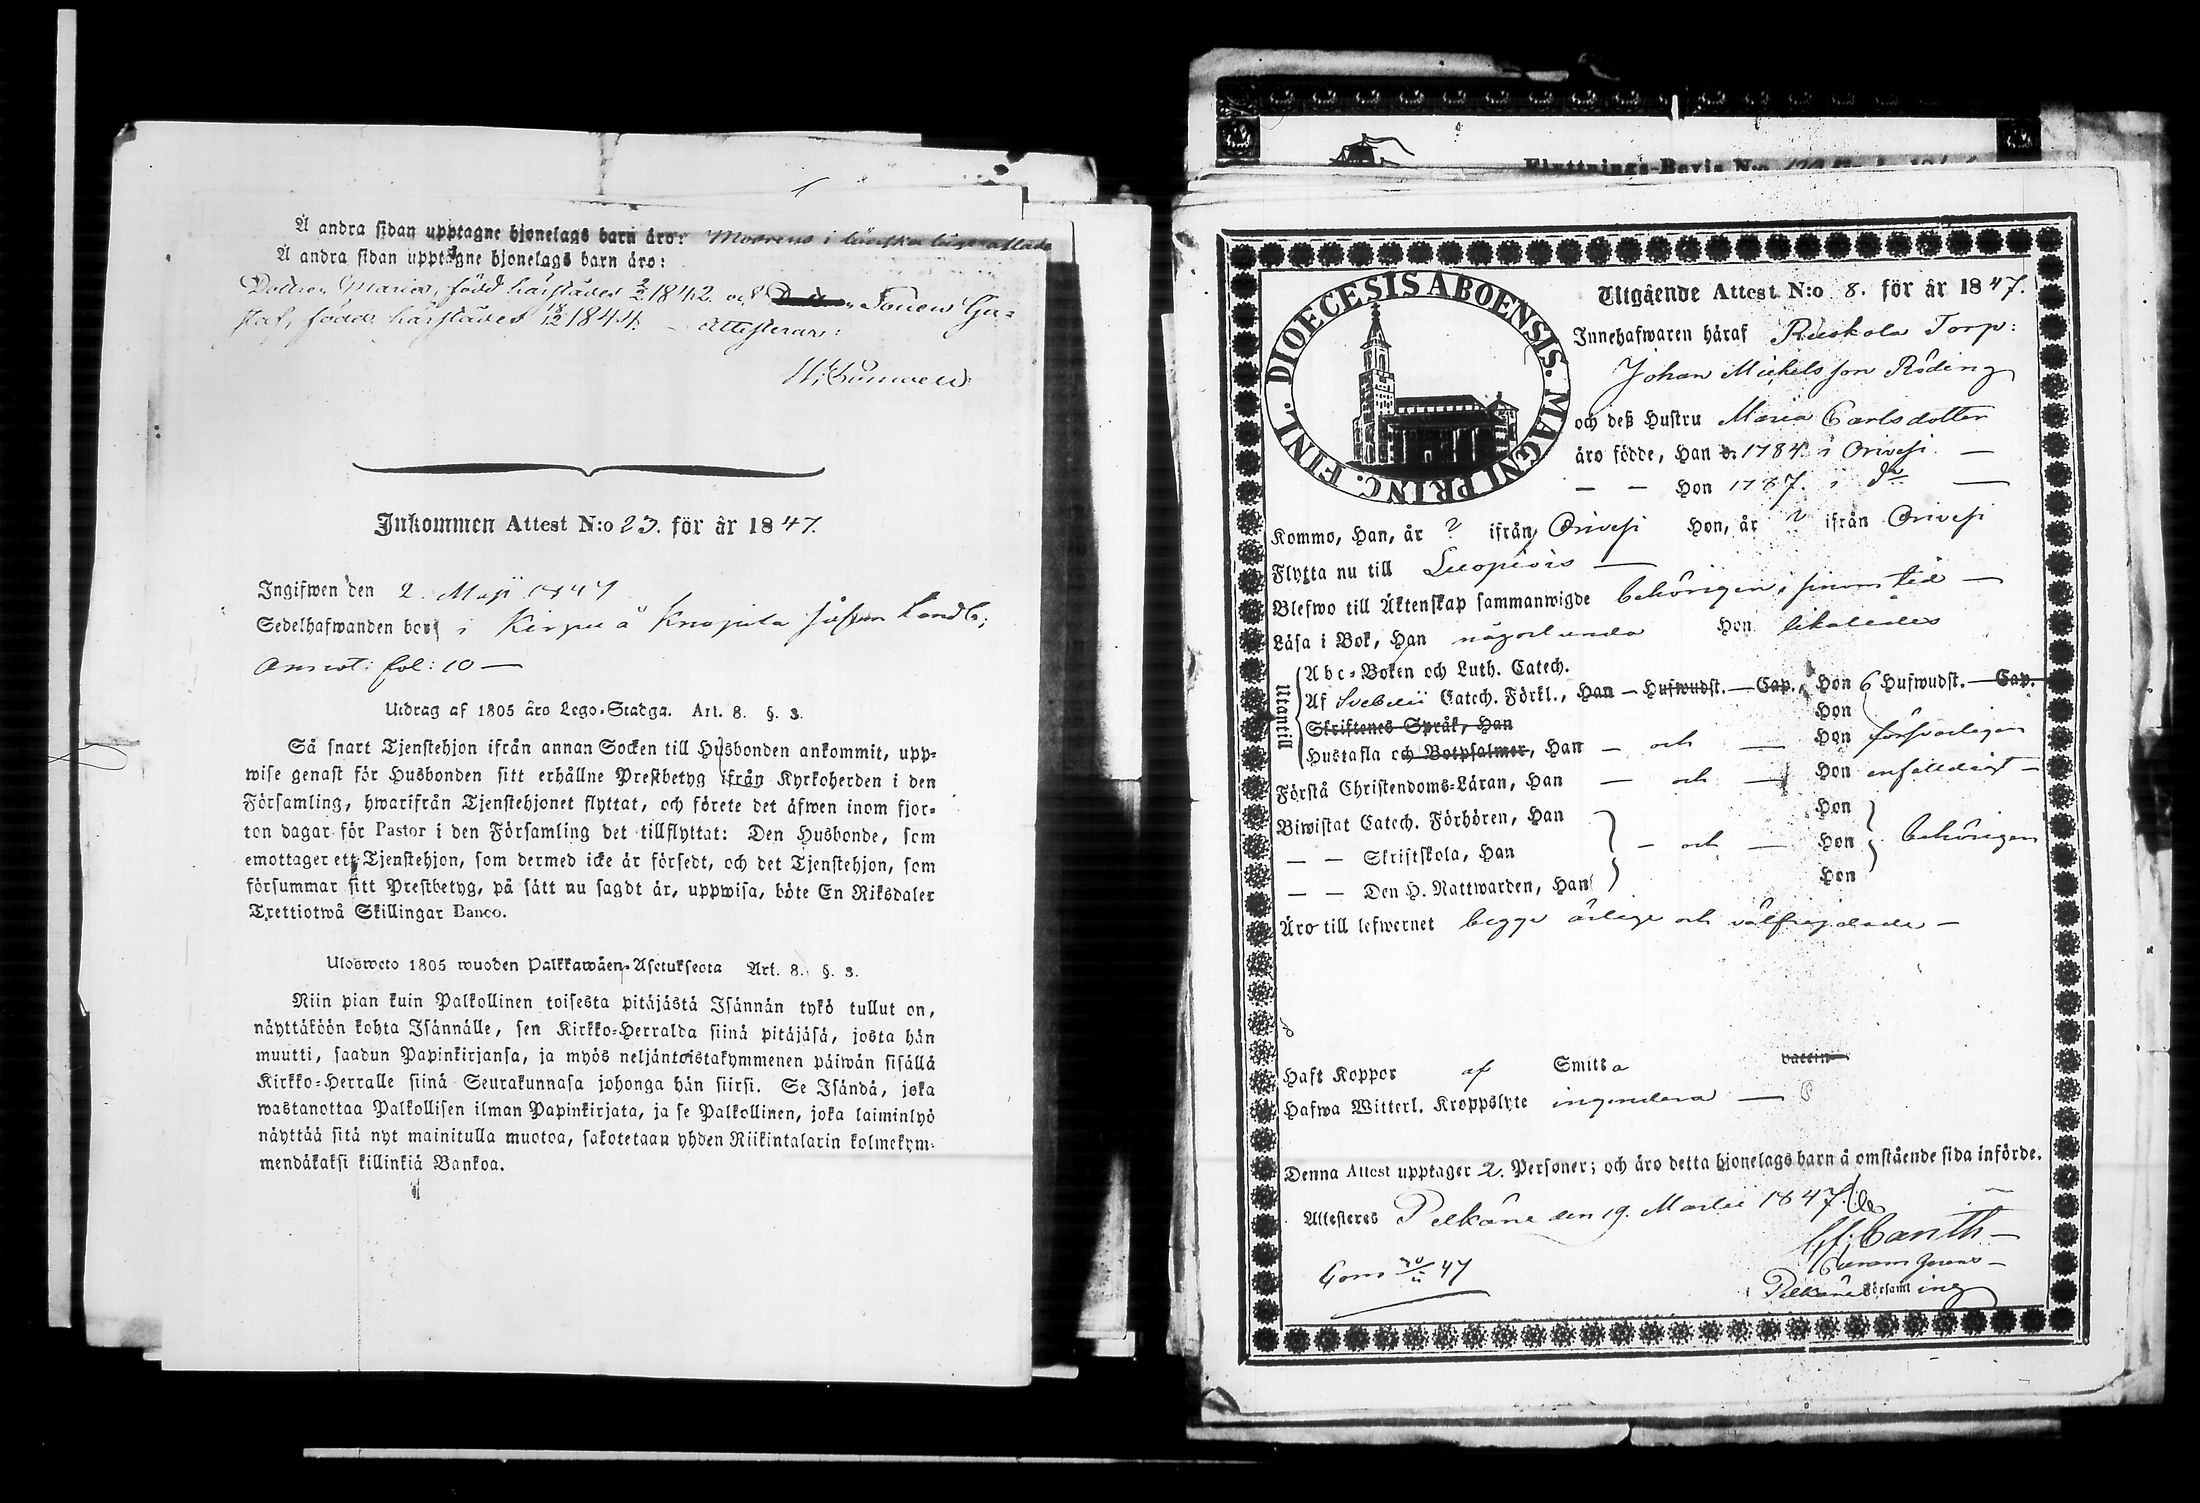 Å andra sidan upptagne hjonelags barn äro:
Å andra sidan upptagne hjonelags barn äro:
Dottren Maria, född härstädes 1842. och Sonen Gu=
staf, född härstädes 1844. — Attesterar:
Inkommen Attest N:o 23. för år 1847.
Ingifwen den 2. Maji 1847
Sedelhafwanden bor i
Annot: fol: 10 —
Utdrag af 1805 års Lego-Stadga. Art. 8. §. 3.
Så snart Tjenstehjon ifrån annan Socken till Husbonden ankommit, upp-
wise genast för Husbonden sitt erhållne Prestbetyg ifrån Kyrkoherden i den
Församling, hwarifrån Tjenstehjonet flyttat, och förete det äfwen inom fjor-
ton dagar för Pastor i den Församling det tillflyttat: Den Husbonde, som
emottager ett Tjenstehjon, som dermed icke är försedt, och det Tjenstehjon, som
försummar sitt Prestbetyg, på sätt nu sagdt är, uppwisa, böte En Riksdaler
Trettiotwå Skillingar Banco.
Ulosweto 1805 wuoden Palkkawäen-Asetuksesta Art. 8. §. 3.
Niin pian kuin Palkollinen toisesta pitäjästä Isännän tykö tullut on,
näyttäköön kohta Isännälle, sen Kirkko-Herralda siinä pitäjäsä, josta hän
muutti, saadun Papinkirjansa, ja myös neljäntoistakymmenen päiwän sisällä
Kirkko-Herralle siinä Seurakunnasa johonga hän siirsi. Se Isändä, joka
wastanottaa Palkollisen ilman Papinkirjata, ja se Palkollinen, joka laiminlyö
näyttää sitä nyt mainitulla muotoa, sakotetaan yhden Riikintalarin kolmekym-
mendäkaksi killinkiä Bankoa.
Flyttnings-Bevis N:o
DIOECESIS ABOENSIS. MAGNI PRINC. FINL.
Utgående Attest N:o 8. för år 1847.
Innehafwaren häraf Ruskola Torp:
Johan Michelsson Röding
och deß Hustru Maria Carlsdotter
äro födde, Han 1784. i Orivesi —
— — Hon 1787. i do —
Kommo, Han, år ? ifrån Orivesi Hon, år ? ifrån Orivesi
Flytta nu till Luopiois —
Blefwo till Äktenskap sammanwigde behörigen i sinom tid —
Läsa i Bok, Han någorlunda Hon likaledes
Utantill
Abc-Boken och Luth. Catech.
Af Svebelii Catech. Förkl., Han — Hufwudst. — Cap., Hon 6 Hufwudst. — Cap.
Skriftenes Språk, Han Hon
Hustafla och Botpsalmer, Han — och — Hon försvarligen
Förstå Christendoms-Läran, Han — och — Hon enfaldigt —
Biwistat Catech. Förhören, Han Hon
— — Skriftskola, Han — och — Hon behörigen
— — Den H. Nattwarden, Han Hon
Äro till lefwernet begge ärlige och välfrejdade —
Haft Koppor af Smitta vaccin
Hafwa Witterl. Kroppslyte ingendera —
Denna Attest upptager 2. Personer; och äro detta hjonelags barn å omstående sida införde.
Attesteras Pelkäne den 19. Martii 1847.
Canth —
Pelkäne Församling